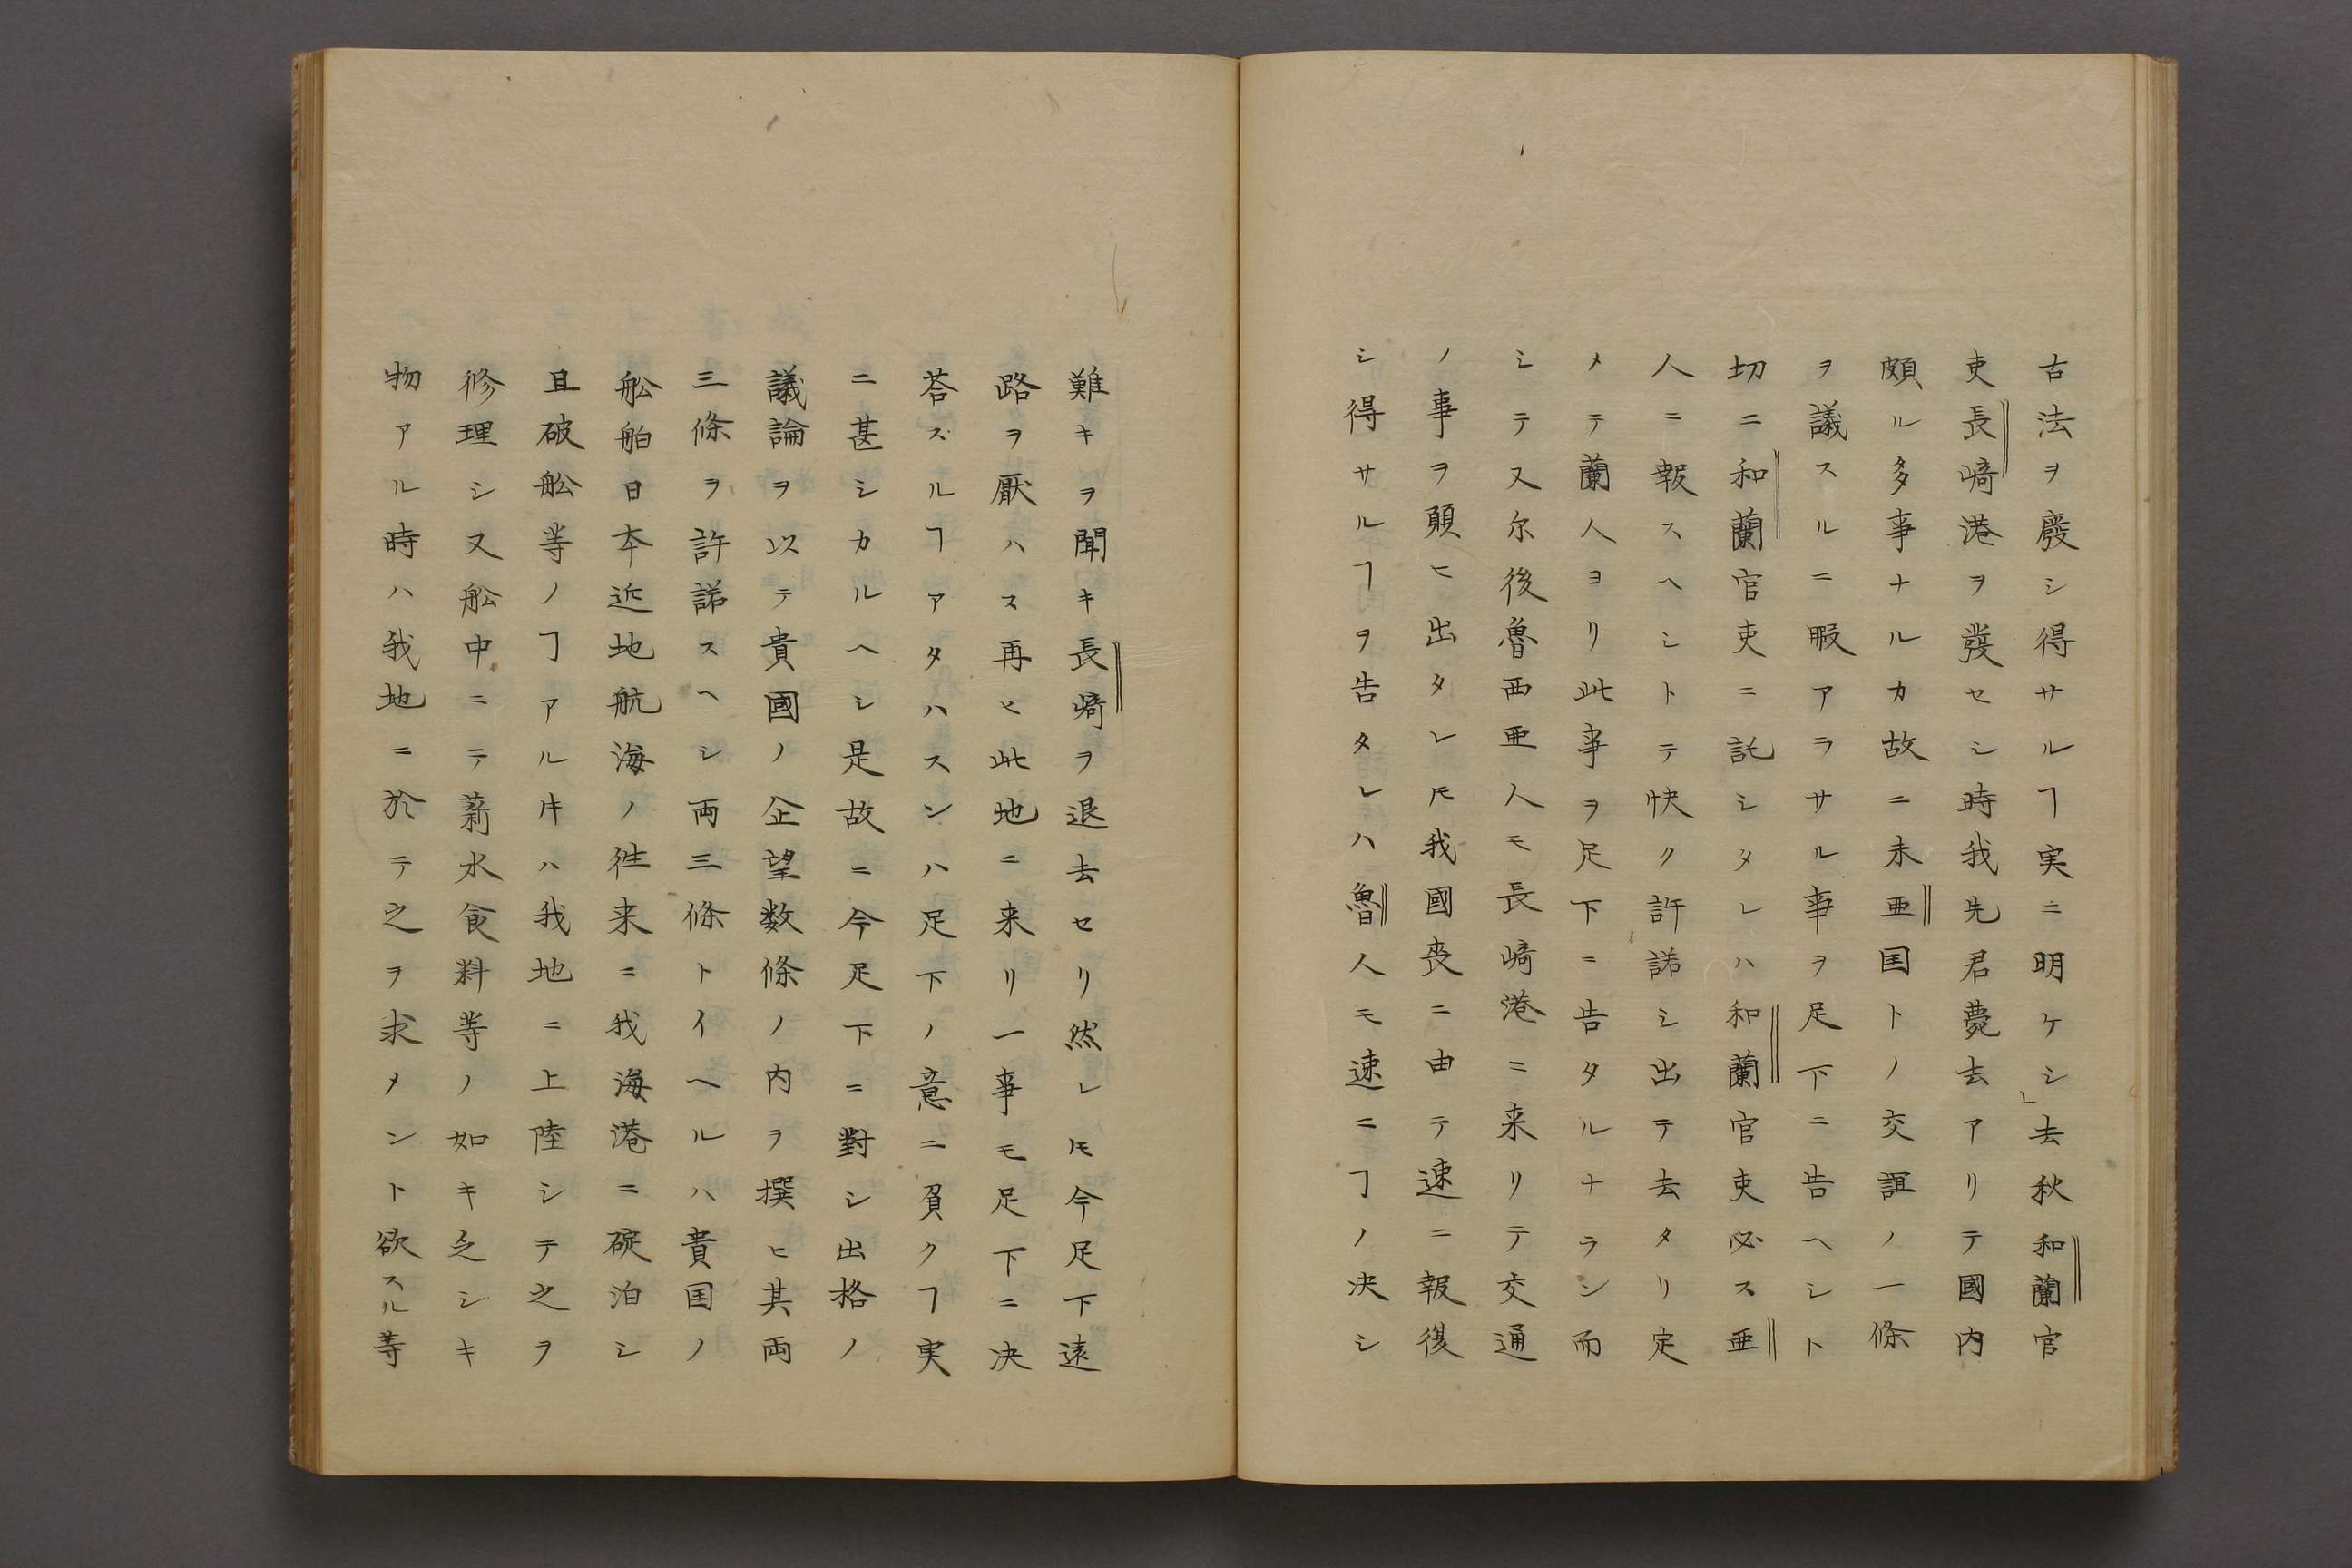 古法ヲ廢シ得サルヿ実ニ明ケシ」去秋和蘭官
吏長﨑港ヲ發セシ時我先君薨去アリテ國内
頗ル多事ナルカ故ニ未亜国トノ交誼ノ一條
ヲ議スルニ暇アラサル事ヲ足下ニ告ヘシト
切ニ和蘭官吏ニ託シタレハ和蘭官吏必ス亜
人ニ報スヘシトテ快ク許諾シ出テ去タリ定
メテ蘭人ヨリ此事ヲ足下ニ告タルナラン而
シテ又尔後魯西亜人モ長﨑港ニ来リテ交通
ノ事ヲ願ヒ出タレ𪜈我國喪ニ由テ速ニ報復
シ得サルヿヲ告タレハ魯人モ速ニヿノ决シ
難キヲ聞キ長﨑ヲ退去セリ然レ𪜈今足下遠
路ヲ厭ハス再ヒ此地ニ来リ一事モ足下ニ决
荅ズルヿアタハスンハ足下ノ意ニ負クヿ実
ニ甚シカルヘシ是故ニ今足下ニ對シ出格ノ
議論ヲ以テ貴國ノ企望数條ノ内ヲ撰ヒ其両
三條ヲ許諾スヘシ両三條トイヘルハ貴国ノ
舩舶日夲近地航海ノ徃来ニ我海港ニ碇泊シ
且破舩等ノヿアル𪜈ハ我地ニ上陸シテ之ヲ
修理シ又舩中ニテ薪水食料等ノ如キ乏シキ
物アル時ハ我地ニ於テ之ヲ求メント欲スル等